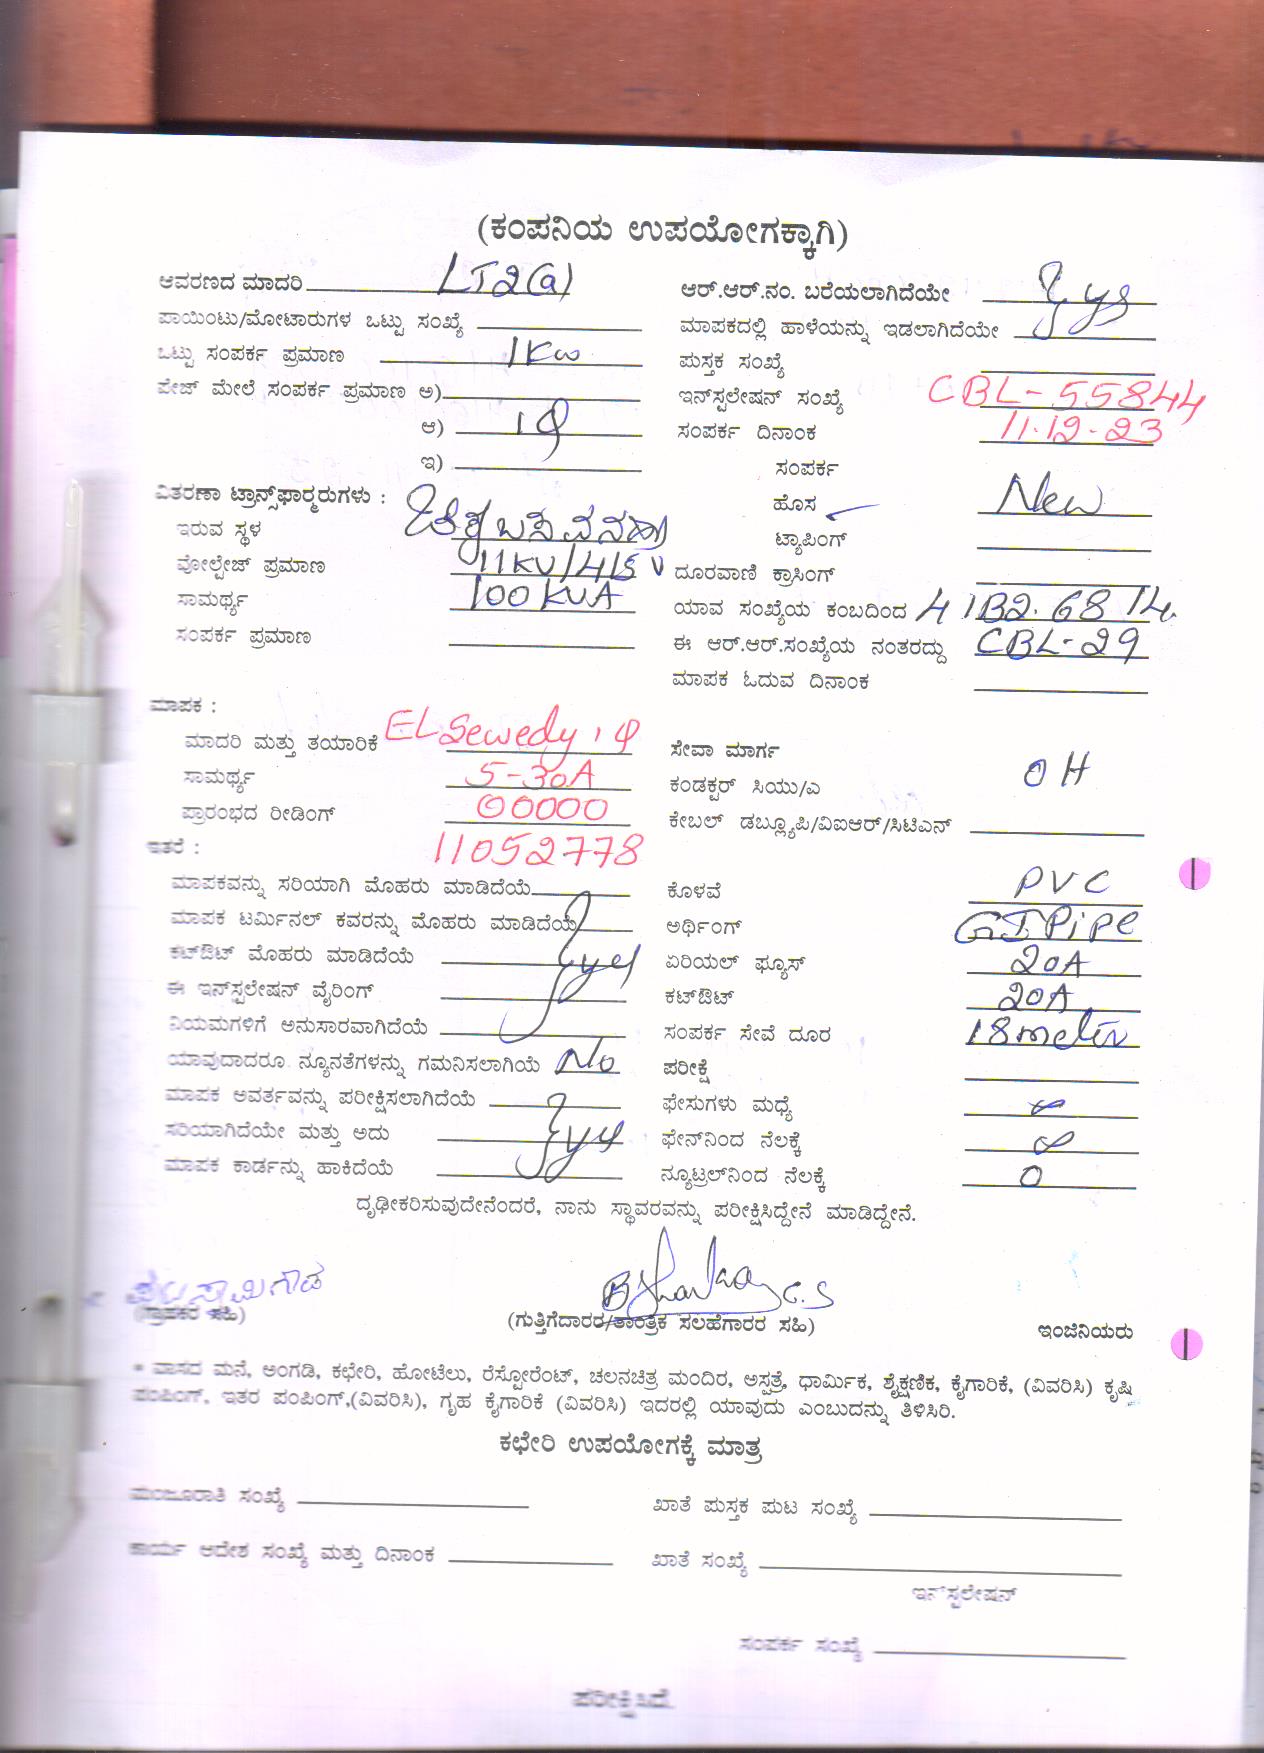 (ಕಂಪನಿಯ ಉಪಯೋಗಕ್ಕಾಗಿ)
ಆವರಣದ ಮಾದರಿ LT2(a)
ಪಾಯಿಂಟು/ಮೋಟಾರುಗಳ ಒಟ್ಟು ಸಂಖ್ಯೆ
ಒಟ್ಟು ಸಂಪರ್ಕ ಪ್ರಮಾಣ 1Kw
ಪೇಜ್ ಮೇಲೆ ಸಂಪರ್ಕ ಪ್ರಮಾಣ ಅ)
ಆ) 1φ
ಇ)
ವಿತರಣಾ ಟ್ರಾನ್ಸ್‌ಫಾರ್ಮರುಗಳು :
ಇರುವ ಸ್ಥಳ
ವೋಲ್ಟೇಜ್ ಪ್ರಮಾಣ 11KV/415V
ಸಾಮರ್ಥ್ಯ 100KVA
ಸಂಪರ್ಕ ಪ್ರಮಾಣ
ಮಾಪಕ :
ಮಾದರಿ ಮತ್ತು ತಯಾರಿಕೆ EL Sewedy 1φ
ಸಾಮರ್ಥ್ಯ 5-30A
ಪ್ರಾರಂಭದ ರೀಡಿಂಗ್ 00000
ಇತರೆ : 11052778
ಮಾಪಕವನ್ನು ಸರಿಯಾಗಿ ಮೊಹರು ಮಾಡಿದೆಯೆ
ಮಾಪಕ ಟರ್ಮಿನಲ್ ಕವರನ್ನು ಮೊಹರು ಮಾಡಿದೆಯೆ
ಕಟ್‌ಔಟ್ ಮೊಹರು ಮಾಡಿದೆಯೆ yes
ಈ ಇನ್‌ಸ್ಟಲೇಷನ್ ವೈರಿಂಗ್
ನಿಯಮಗಳಿಗೆ ಅನುಸಾರವಾಗಿದೆಯೆ
ಯಾವುದಾದರೂ ನ್ಯೂನತೆಗಳನ್ನು ಗಮನಿಸಲಾಗಿಯೆ No
ಮಾಪಕ ಅವರ್ತವನ್ನು ಪರೀಕ್ಷಿಸಲಾಗಿದೆಯೆ
ಸರಿಯಾಗಿದೆಯೇ ಮತ್ತು ಅದು yes
ಮಾಪಕ ಕಾರ್ಡನ್ನು ಹಾಕಿದೆಯೆ
ಆರ್.ಆರ್.ನಂ. ಬರೆಯಲಾಗಿದೆಯೇ yes
ಮಾಪಕದಲ್ಲಿ ಹಾಳೆಯನ್ನು ಇಡಲಾಗಿದೆಯೇ
ಪುಸ್ತಕ ಸಂಖ್ಯೆ
ಇನ್‌ಸ್ಟಲೇಷನ್ ಸಂಖ್ಯೆ CBL-55844
ಸಂಪರ್ಕ ದಿನಾಂಕ 11-12-23
ಸಂಪರ್ಕ
ಹೊಸ New
ಟ್ಯಾಪಿಂಗ್
ದೂರವಾಣಿ ಕ್ರಾಸಿಂಗ್
ಯಾವ ಸಂಖ್ಯೆಯ ಕಂಬದಿಂದ
ಈ ಆರ್.ಆರ್.ಸಂಖ್ಯೆಯ ನಂತರದ್ದು CBL-29
ಮಾಪಕ ಓದುವ ದಿನಾಂಕ
ಸೇವಾ ಮಾರ್ಗ
ಕಂಡಕ್ಟರ್ ಸಿಯು/ಎ OH
ಕೇಬಲ್ ಡಬ್ಲ್ಯೂಪಿ/ವಿಐಆರ್/ಸಿಟಿಎನ್
ಕೊಳವೆ PVC
ಅರ್ಥಿಂಗ್ GI Pipe
ಏರಿಯಲ್ ಫ್ಯೂಸ್ 20A
ಕಟ್‌ಔಟ್ 20A
ಸಂಪರ್ಕ ಸೇವೆ ದೂರ 18 meter
ಪರೀಕ್ಷೆ
ಫೇಸುಗಳು ಮಧ್ಯೆ ∞
ಫೇನ್‌ನಿಂದ ನೆಲಕ್ಕೆ ∞
ನ್ಯೂಟ್ರಲ್‌ನಿಂದ ನೆಲಕ್ಕೆ 0
ದೃಢೀಕರಿಸುವುದೇನೆಂದರೆ, ನಾನು ಸ್ಥಾವರವನ್ನು ಪರೀಕ್ಷಿಸಿದ್ದೇನೆ ಮಾಡಿದ್ದೇನೆ.
(ಗ್ರಾಹಕರ ಸಹಿ)
(ಗುತ್ತಿಗೆದಾರರ/ತಾಂತ್ರಿಕ ಸಲಹೆಗಾರರ ಸಹಿ)
ಇಂಜಿನಿಯರು
* ವಾಸದ ಮನೆ, ಅಂಗಡಿ, ಕಛೇರಿ, ಹೋಟೆಲು, ರೆಸ್ಟೋರೆಂಟ್, ಚಲನಚಿತ್ರ ಮಂದಿರ, ಅಸ್ಪತ್ರೆ, ಧಾರ್ಮಿಕ, ಶೈಕ್ಷಣಿಕ, ಕೈಗಾರಿಕೆ, (ವಿವರಿಸಿ) ಕೃಷಿ
ಪಂಪಿಂಗ್, ಇತರ ಪಂಪಿಂಗ್,(ವಿವರಿಸಿ), ಗೃಹ ಕೈಗಾರಿಕೆ (ವಿವರಿಸಿ) ಇದರಲ್ಲಿ ಯಾವುದು ಎಂಬುದನ್ನು ತಿಳಿಸಿರಿ.
ಕಛೇರಿ ಉಪಯೋಗಕ್ಕೆ ಮಾತ್ರ
ಮಂಜೂರಾತಿ ಸಂಖ್ಯೆ
ಖಾತೆ ಪುಸ್ತಕ ಪುಟ ಸಂಖ್ಯೆ
ಕಾರ್ಯ ಆದೇಶ ಸಂಖ್ಯೆ ಮತ್ತು ದಿನಾಂಕ
ಖಾತೆ ಸಂಖ್ಯೆ
ಇನ್‌ಸ್ಟಲೇಷನ್
ಸಂಪರ್ಕ ಸಂಖ್ಯೆ
ಪರೀಕ್ಷಿಸಿದೆ.